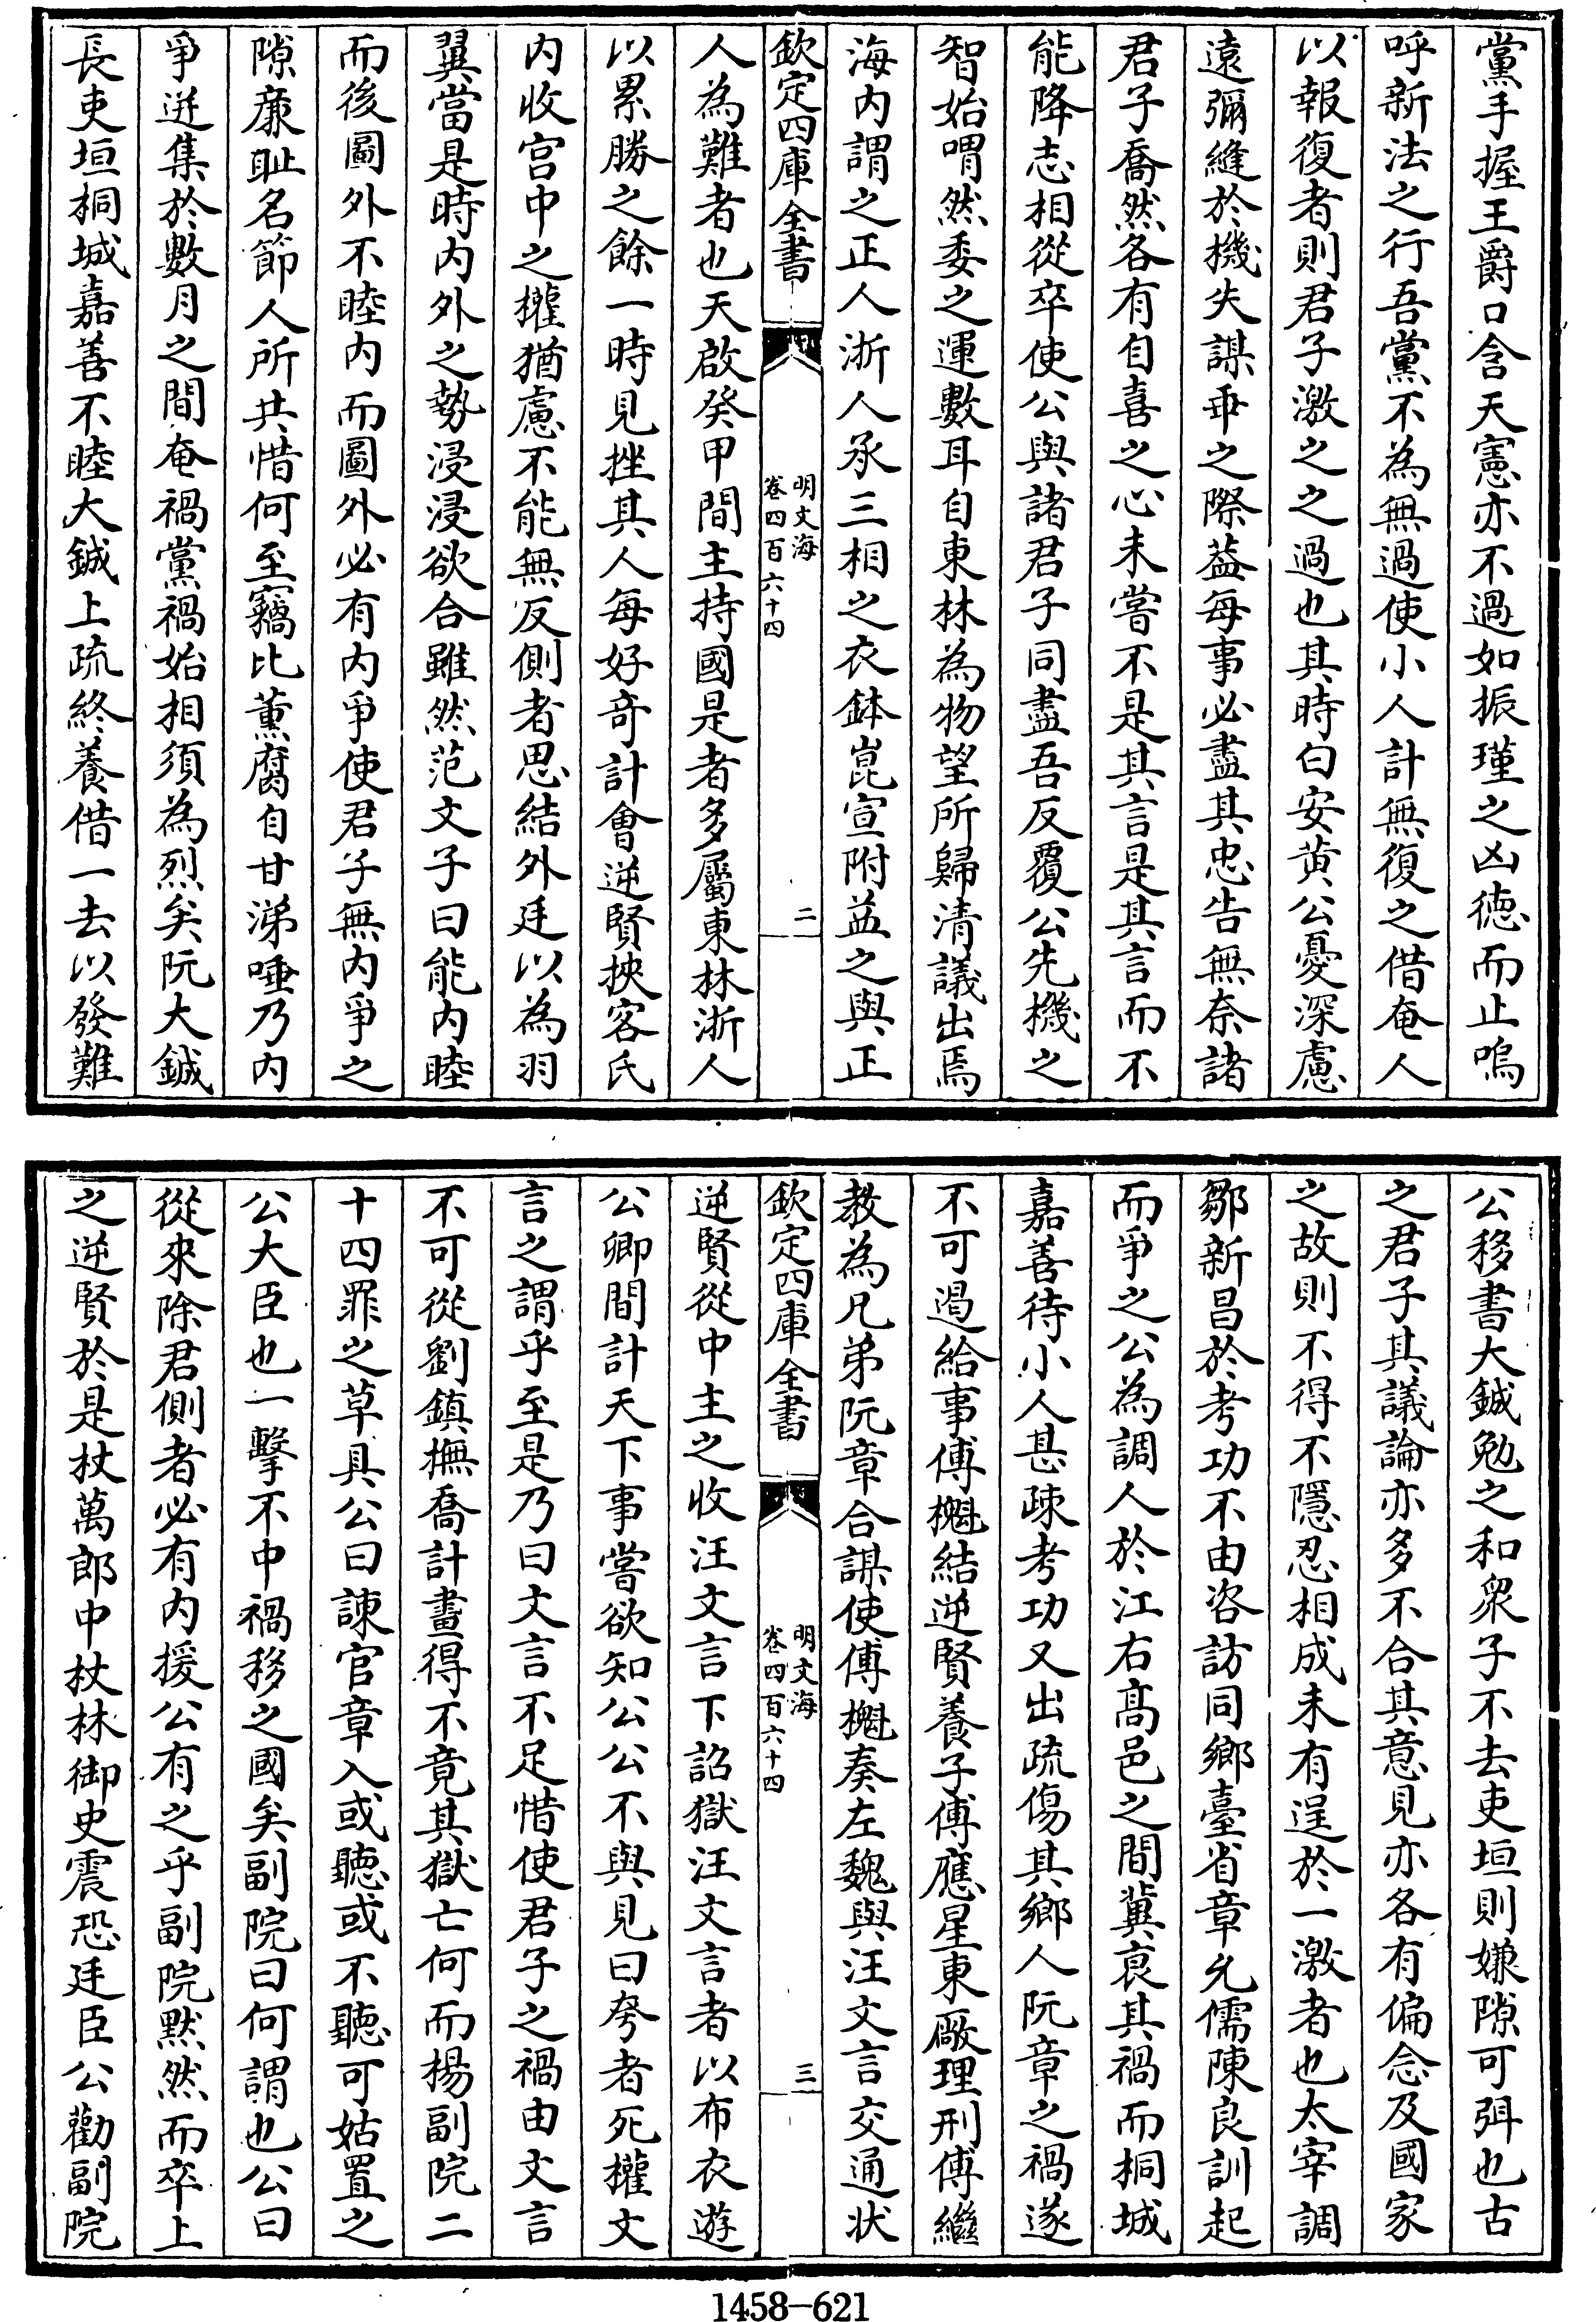 黨手握王爵口含天憲亦不過如振瑾之凶徳而止嗚
呼新法之行吾黨不為無過使小人計無復之借奄人
以報復者則君子激之之過也其時白安黄公憂深慮
遠彌縫於機失謀乖之際葢每事必盡其忠告無奈諸
君子喬然各有自喜之心未嘗不是其言是其言而不
能降志相從卒使公與諸君子同盡吾反覆公先機之
智始喟然委之運數耳自東林為物望所歸清議出焉
海内謂之正人浙人承三相之衣鉢崑宣附益之與正
欽定四庫全書
明文海
卷四百六十四
二
人為難者也天啟癸甲間主持國是者多屬東林浙人
以累勝之餘一時見挫其人每好奇計會逆賢挾客氏
内收宫中之權猶慮不能無反側者思結外廷以為羽
翼當是時内外之勢浸浸欲合雖然范文子曰能内睦
而後圖外不睦内而圖外必有内爭使君子無内爭之
隙亷耻名節人所共惜何至竊比薰腐自甘涕唾乃内
爭迸集於數月之間奄禍黨禍始相須為烈矣阮大鋮
長吏垣桐城嘉善不睦大鋮上疏終養借一去以發難
公移書大鋮勉之和衆子不去吏垣則嫌隙可弭也古
之君子其議論亦多不合其意見亦各有偏念及國家
之故則不得不隱忍相成未有逞於一激者也太宰調
鄒新昌於考功不由咨訪同鄉臺省章允儒陳良訓起
而爭之公為調人於江右髙邑之間冀哀其禍而桐城
嘉善待小人甚疎考功又出疏傷其鄉人阮章之禍遂
不可遏給事傅櫆結逆賢養子傅應星東厰理刑傅繼
教為兄弟阮章合謀使傅櫆奏左魏與汪文言交通狀
欽定四庫全書
明文海
卷四百六十四
三
逆賢從中主之收汪文言下詔獄汪文言者以布衣遊
公卿間計天下事嘗欲知公公不與見曰夸者死權文
言之謂乎至是乃曰文言不足惜使君子之禍由文言
不可從劉鎮撫喬計畫得不竟其獄亡何而楊副院二
十四罪之草具公曰諫官章入或聽或不聽可姑置之
公大臣也一擊不中禍移之國矣副院曰何謂也公曰
從來除君側者必有内援公有之乎副院黙然而卒上
之逆賢於是杖萬郎中杖林御史震恐廷臣公勸副院
1458-621